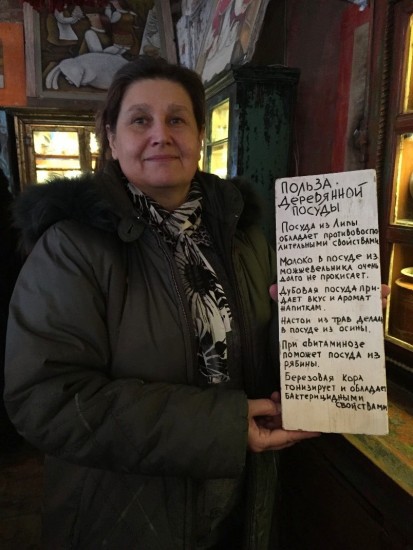 ПОЛЬЗА
ДЕРЕВЯННОЙ
ПОСУДЫ
ПОСУДА ИЗ ЛИПЫ
ОБЛАДАЕТ ПРОТИВОВОСПА
ЛИТЕЛЬНЫМИ СВОЙСТВАМИ
МОЛОКО В ПОСУДЕ ИЗ
МОЖЖЕВЕЛЬНИКА ОЧЕНЬ
ДОЛГО НЕ ПРОКИСАЕТ.
ДУБОВАЯ ПОСУДА ПРИ-
ДАЕТ ВКУС И АРОМАТ
НАПИТКАМ.
НАСТОИ ИЗ ТРАВ ДЕЛАЛИ
В ПОСУДЕ ИЗ ОСИНЫ.
ПРИ АВИТАМИНОЗЕ
ПОМОЖЕТ ПОСУДА ИЗ
РЯБИНЫ.
БЕРЕЗОВАЯ КОРА
ТОНИЗИРУЕТ И ОБЛАДАЕТ
БАКТЕРИЦИДНЫМИ
СВОЙСТВАМИ